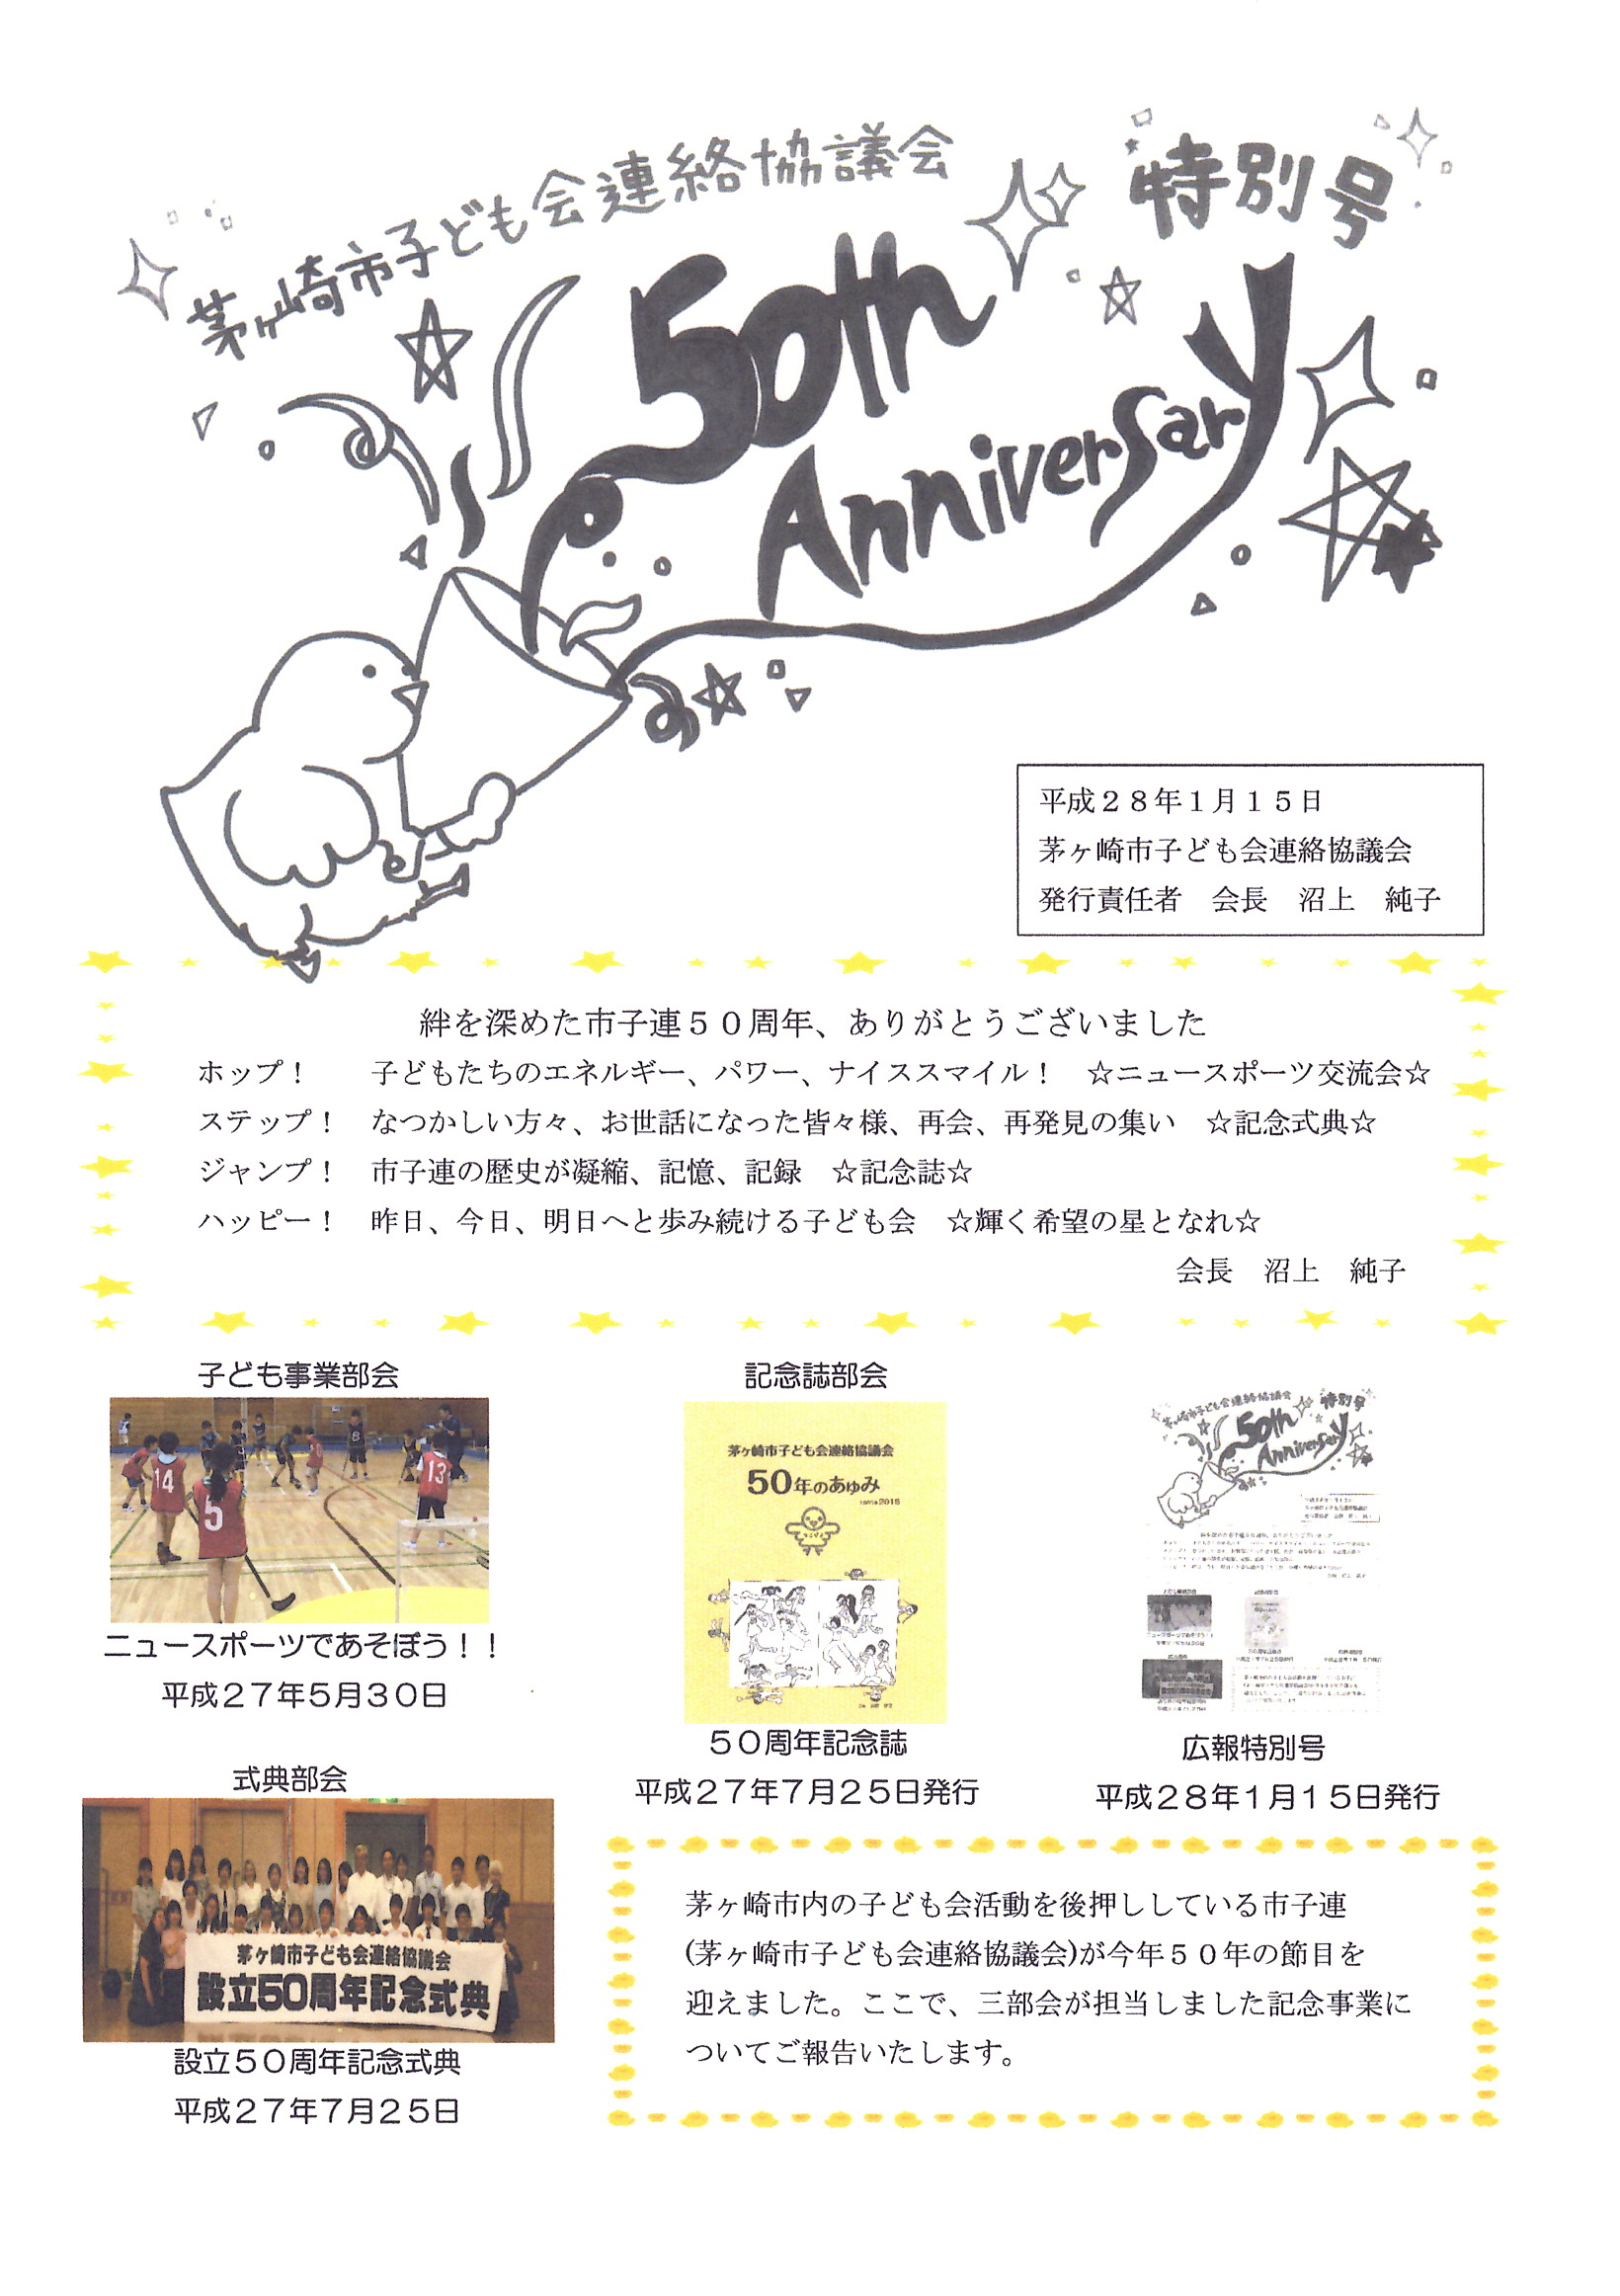 茅ヶ崎市子ども会連絡協議会
特別号
50th
Anniversary
平成２８年１月１５日
茅ヶ崎市子ども会連絡協議会
発行責任者　会長　沼上　純子
絆を深めた市子連５０周年、ありがとうございました
ホップ！　子どもたちのエネルギー、パワー、ナイススマイル！　☆ニュースポーツ交流会☆
ステップ！　なつかしい方々、お世話になった皆々様、再会、再発見の集い　☆記念式典☆
ジャンプ！　市子連の歴史が凝縮、記憶、記録　☆記念誌☆
ハッピー！　昨日、今日、明日へと歩み続ける子ども会　☆輝く希望の星となれ☆
会長　沼上　純子
子ども事業部会
14
5
13
8
ニュースポーツであそぼう！！
平成２７年５月３０日
記念誌部会
茅ヶ崎市子ども会連絡協議会
50年のあゆみ
５０周年記念誌
平成２７年７月２５日発行
茅ヶ崎市子ども会連絡協議会
特別号
50th
Anniversary
広報特別号
平成２８年１月１５日発行
式典部会
茅ヶ崎市子ども会連絡協議会
設立50周年記念式典
設立５０周年記念式典
平成２７年７月２５日
茅ヶ崎市内の子ども会活動を後押ししている市子連
(茅ヶ崎市子ども会連絡協議会)が今年５０年の節目を
迎えました。ここで、三部会が担当しました記念事業に
ついてご報告いたします。